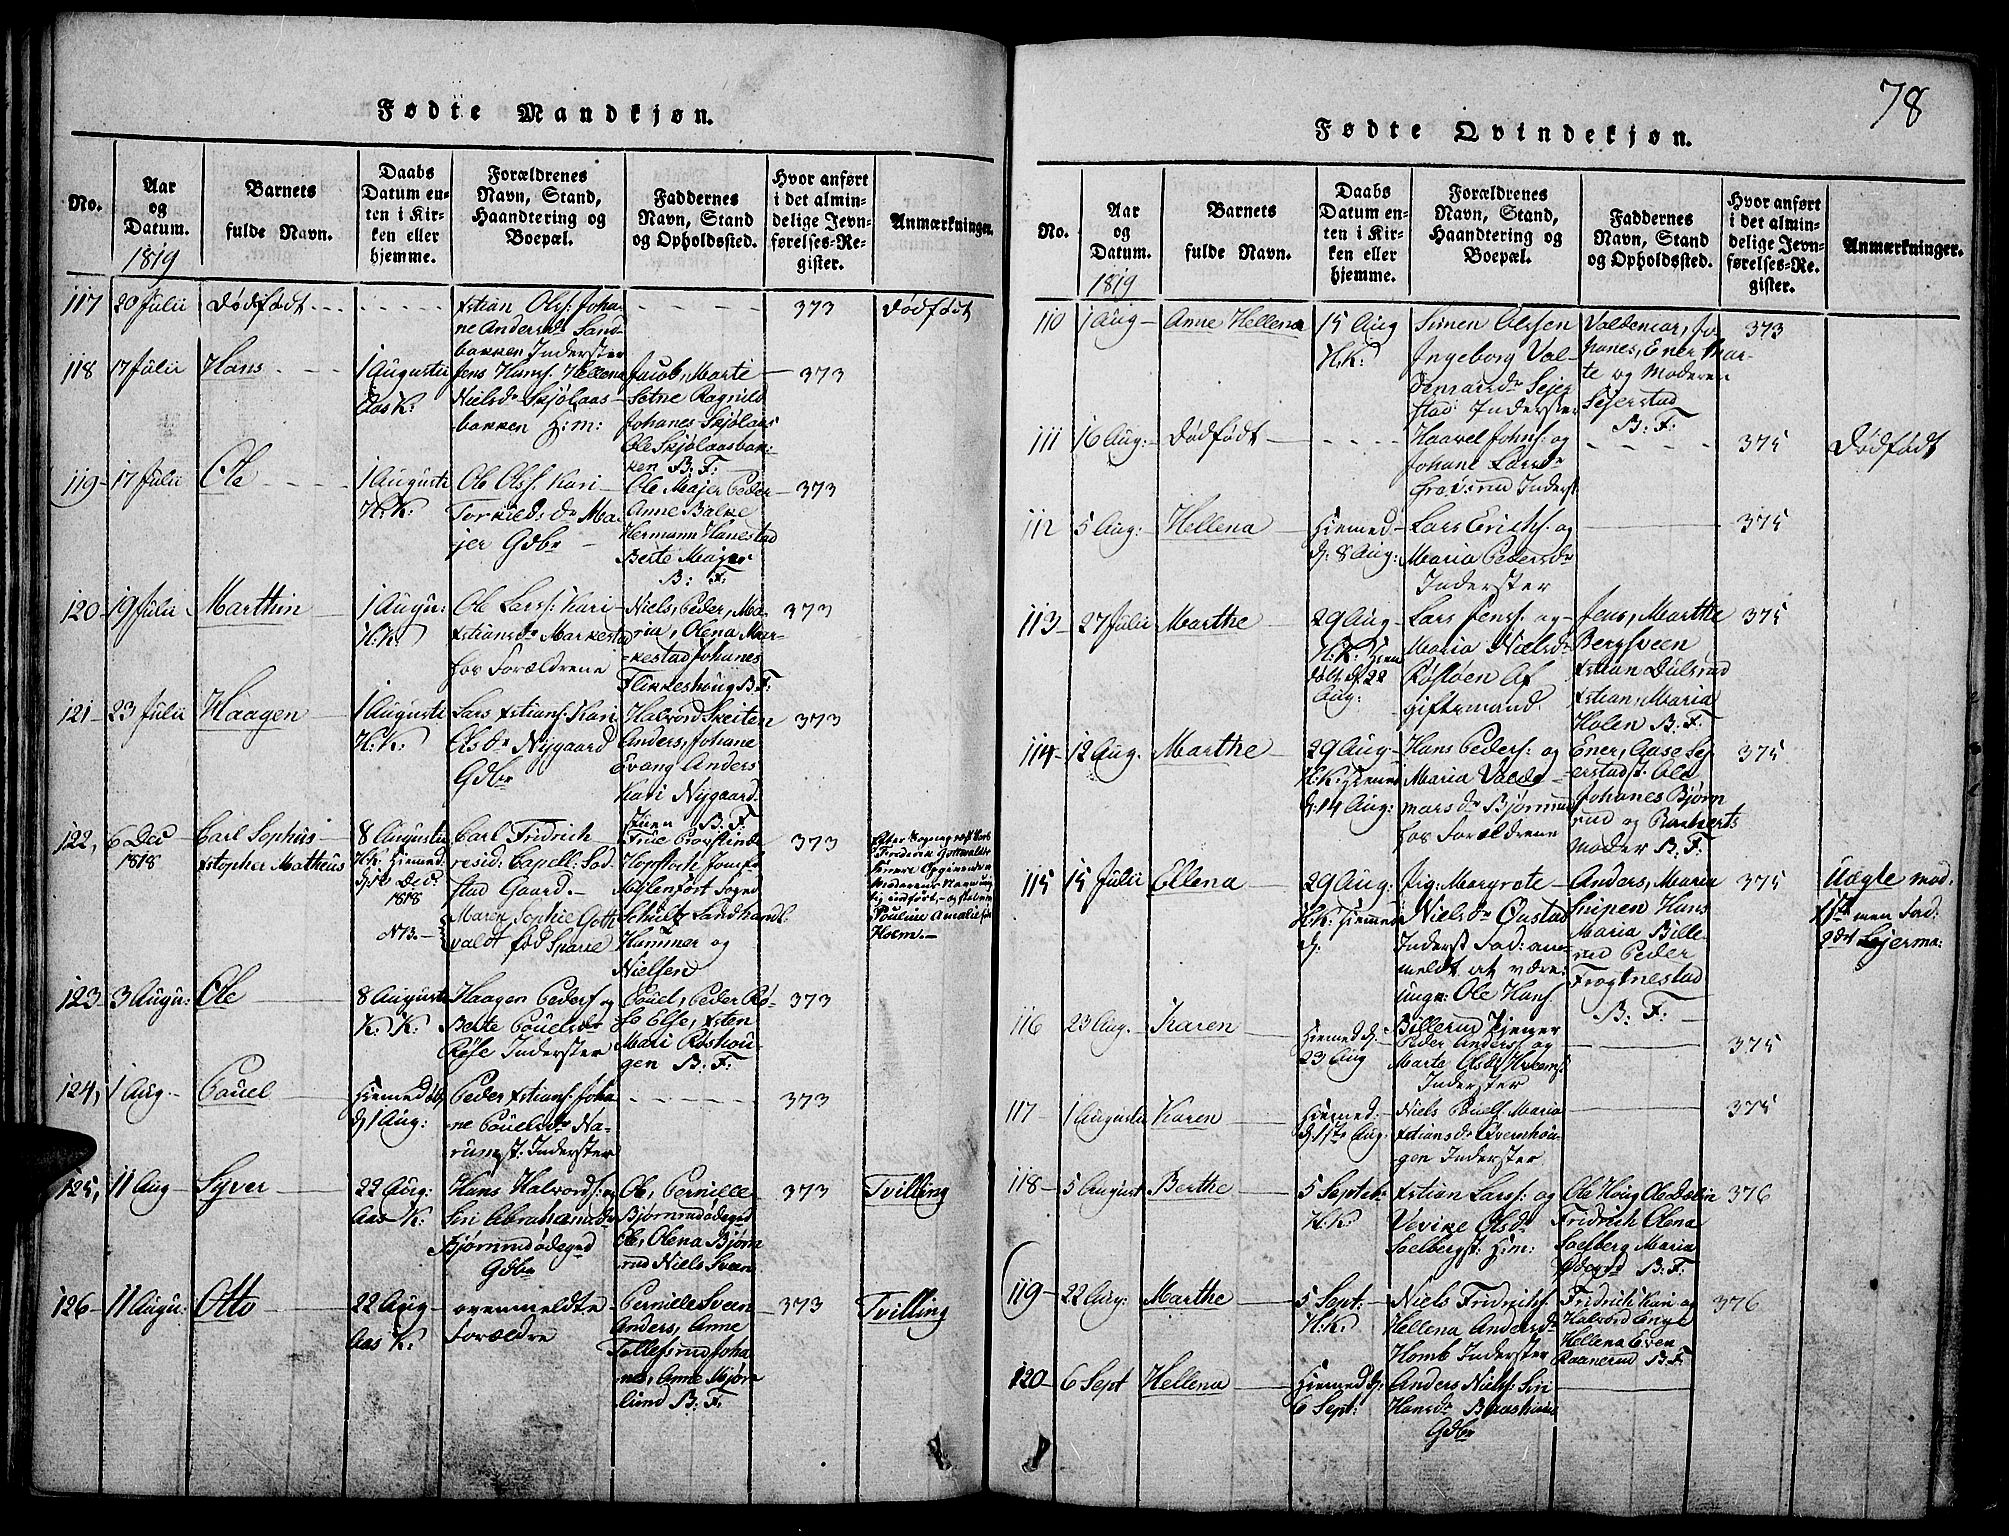 Fødte Mandkjøn.
No.
Aar
og
Datum.
1819
Barnets
fulde Navn.
Daabs
Datum en-
ten i Kir-
ken eller
hjemme.
Forældrenes
Navn, Stand,
Haandtering og
Boepæl.
Faddernes
Navn, Stand
og Opholdssted.
Hvor anført
i det almin-
delige Jevn-
førelses-Re-
gister.
Anmærkninger.
117
20 Julii
Dødfødt
xstian Olss: Joha-
ne Andersdr Sand-
bakken Inderster
373
Dødfødt
118
17 Julii
Hans
1 Augusti
Aas K:
Jens Hans: Hellena
Nielsdr Skjølaas-
bakken H:m:
Jacob, Marte
Sætne Ragnild
Johanes Skjølaas
Ole Skjølaasbak-
ken B: F:
373
119
17 Julii
Ole
1 Augusti
H:K:
Ole Olss: Kari
Torkild: dr Ma-
jer Gdbr
Ole Majer Peder
Anne Balke
Hermann Hanestad
Berte Majer
B: F:
373
120
19 Julii
Marthin
1 Augu:
H:K:
Ole Larss: Kari
xstiansdr Markestad
hos Forældrene
Niels, Peder, Ma-
ria, Olena Mar-
kestad Johanes
Flikkeshoug B:F:
373
121
23 Julii
Haagen
1 Augusti
H:K:
Lars xstians: Kari
Olsdr Nygaard
Gdbr
Halvord Skeiten
Anders, Johane
Evang Anders
Kari Nygaard
B: F:
373
122,
6 Dec
1818
Carl Sophus
xstopher Matheus
8 Augusti
H:K: Hiemed:
Dec:
1818
N 73.
Carl Fridrich
resid: Capell: Sad-
stad Gaard.
Maren Sophie Gott-
valdt fød Sparre
True Provstinde
Hopstock Jomfr
Møllenfort Sogne
Schultz Landhandl:
Hammer og
Nielsen
373
Holm.
123
3 Augu:
Ole
8 Augusti
K: K:
Haagen Peders: og
Berte Pouelsdr
Røse Inderster
Pouel, Peder Rø-
se Else, xsten
Mari Røshou-
gen B: F:
373
124,
1 Aug
Pouel
Hiemedøbt
d 1 Aug:
Peder xstians: Joha-
ne Pouelsdr Na-
rumst: Inderster
373
125,
11 Aug
Syver
22 Aug:
Aas K:
Hans Halvords: og
Siri Abrahamsdr
Bjørnrudødeged
Gdbr
Ole, Pernille
Bjørnrudødeged
Ole, Olena Bjørn
rud Niels Sveen
373
Tvilling
126
11 Augu:
Otto
22 Aug
Aas K:
ovenmeldte
Forældre
Pernille Sveen
Anders, Anne
Tollefsrud Joha-
nes, Anne Mjør
lund B: F:
373
Tvilling
78
Fødte Qvindekjøn.
No.
Aar
og
Datum.
1819
Barnets
fulde Navn.
Daabs
Datum en-
ten i Kir-
ken eller
hjemme.
Forældrenes
Navn, Stand,
Haandtering og
Boepæl.
Faddernes
Navn, Stand
og Opholdssted.
Hvor anført
i det almin-
delige Jevn-
førelses-Re-
gister.
Anmærkninger.
110
1 Aug
Anne Hellena
15 Aug
H:K:
Simen Olssen
Ingeborg Val-
demarsdr Sejer
stad Inderster
Valdemar, Jo-
hanes, Ener Mar-
te og Moderen
Sejerstad
B: F:
373
111
16 Aug:
Dødfødt
Haavel Johns: og
Johane Larsdr
Inderst
375
Dødfødt
112
5 Aug:
Hellena
Hiemed
d: 8 Aug:
Lars Erichs: og
Maria Pedersdr
Inderster
375
113
27 Julii
Marthe
29 Aug
H:K: Hiem
døbt d 28
Aug:
Lars Jens: og
Maria Nielsdr
Røstøen Af
giftsmand
Jens, Marthe
Bergsveen
xstian Dulsrud
xstian, Maria
Holen B: F:
375
114
12 Aug.
Marthe
29 Aug
H:K: Hiemed
d: 14 Aug:
Hans Peders: og
Maria Valde-
marsdr Bjørnrud
hos Forældrene
Ener, Aase Sej-
erstadst: Ole
Johanes Bjørn
rud og Barnets
Moder B: F:
375
115
15 Julii
Ellena
29 Aug:
H:K: Hiemed
d:
Pig: Margrete
Nielsdr Øustad
Inderst Fad: an-
meldt at være
ungk: Ole Hans:
Billerud Tjener
Anders, Maria
Snipen Hans
Maria Bille-
rud Peder
Frognestad
B: F:
375
Uægte mod:
1ste men Fad:
2det Lejerm:
116
23 Aug.
Karen
Hiemed d:
23 Aug
Peder Anders: og
Marte Olsdr
Inderster
375
117
1 Augusti
Karen
Hiemed:
d 1ste Aug:
Niels Pouels: Maria
xstiansdr Qvernhou-
gen Inderster
375
118
5 August
Berthe
5 Septe:
H.K:
xstian Larss: og
Vevike Olsdr
Soelbergst: H:m:
Ole Houg Ole Dælin
Fridrich Olena
Soelberg Maria
Ødegrd B: F:
376
119
22 Aug:
Marthe
5 Sept:
H:K:
Niels Fridrichs:
Hellena Andersdr
Homb Inderster
Fridrich Kari og
Halvord Enge
Hellena Even
Raanerud B:F:
376
120
6 Sept
Hellena
Hiemed d:
6 Sept:
Anders Niels: Siri
Hansdr Braastad
Gdbr